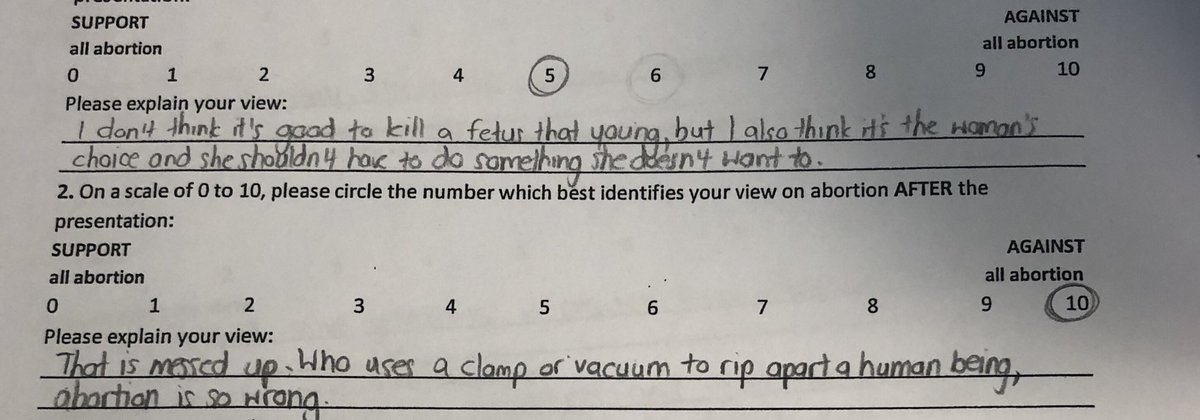 SUPPORT AGAINST
all abortion all abortion
0 1 2 3 4 5 6 7 8 9 10
Please explain your view:
I don't think it's good to kill a fetus that young, but I also think it's the woman's
choice and she shouldn't have to do something she doesn't want to.
2. On a scale of 0 to 10, please circle the number which best identifies your view on abortion AFTER the
presentation:
SUPPORT AGAINST
all abortion all abortion
0 1 2 3 4 5 6 7 8 9 10
Please explain your view:
That is messed up. Who uses a clamp or vacuum to rip apart a human being,
abortion is so wrong.